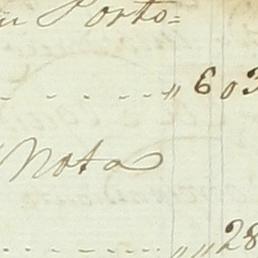 Porto=
- - - - - „ 603
Nota
- - - - - „ „ 28